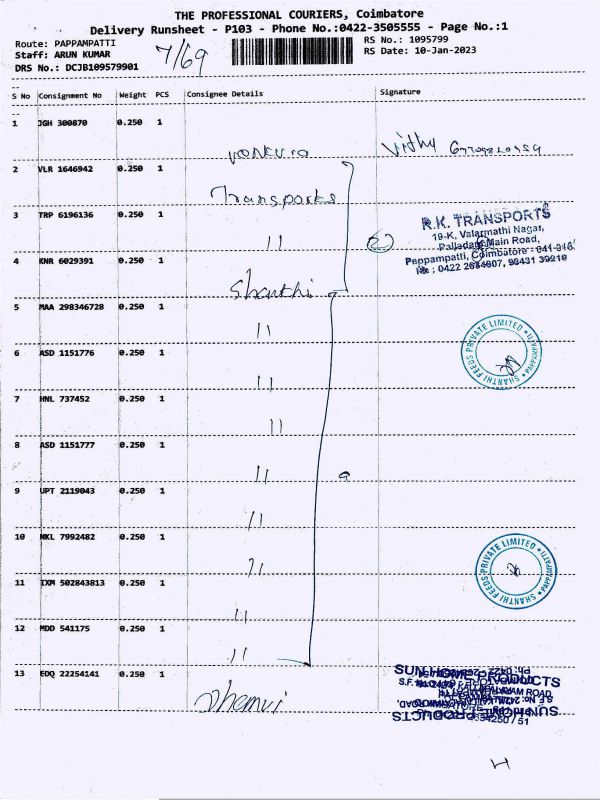 THE PROFESSIONAL COURIERS, Coimbatore
Delivery Runsheet - P103 - Phone No.:0422-3505555 - Page No.:1
Route: PAPPAMPATTI
Staff: ARUN KUMAR
DRS No.: DCJB109579901
7/69
RS No.: 1095799
RS Date: 10-Jan-2023
S No Consignment No Weight PCS Consignee Details Signature
1 JGH 300870 0.250 1
Vithy
2 VLR 1646942 0.250 1 Transports
3 TRP 6196136 0.250 1 11
R.K. TRANSPORTS
19-K, Valarmathi Nagar,
Palladam Main Road,
Peppampatti, Coimbatore - 641 016.
4 KNR 6029391 0.250 1 Shanthi
5 MAA 298346728 0.250 1 11
SHANTHI FEEDS PRIVATE LIMITED * PAPPAMPATTI *
6 ASD 1151776 0.250 1 11
7 HNL 737452 0.250 1 11
8 ASD 1151777 0.250 1 11
9 UPT 2119043 0.250 1 11
10 NKL 7992482 0.250 1 11
SHANTHI FEEDS PRIVATE LIMITED * PAPPAMPATTI *
11 IXM 502843813 0.250 1 11
12 MDD 541175 0.250 1 11
13 EDQ 22254141 0.250 1